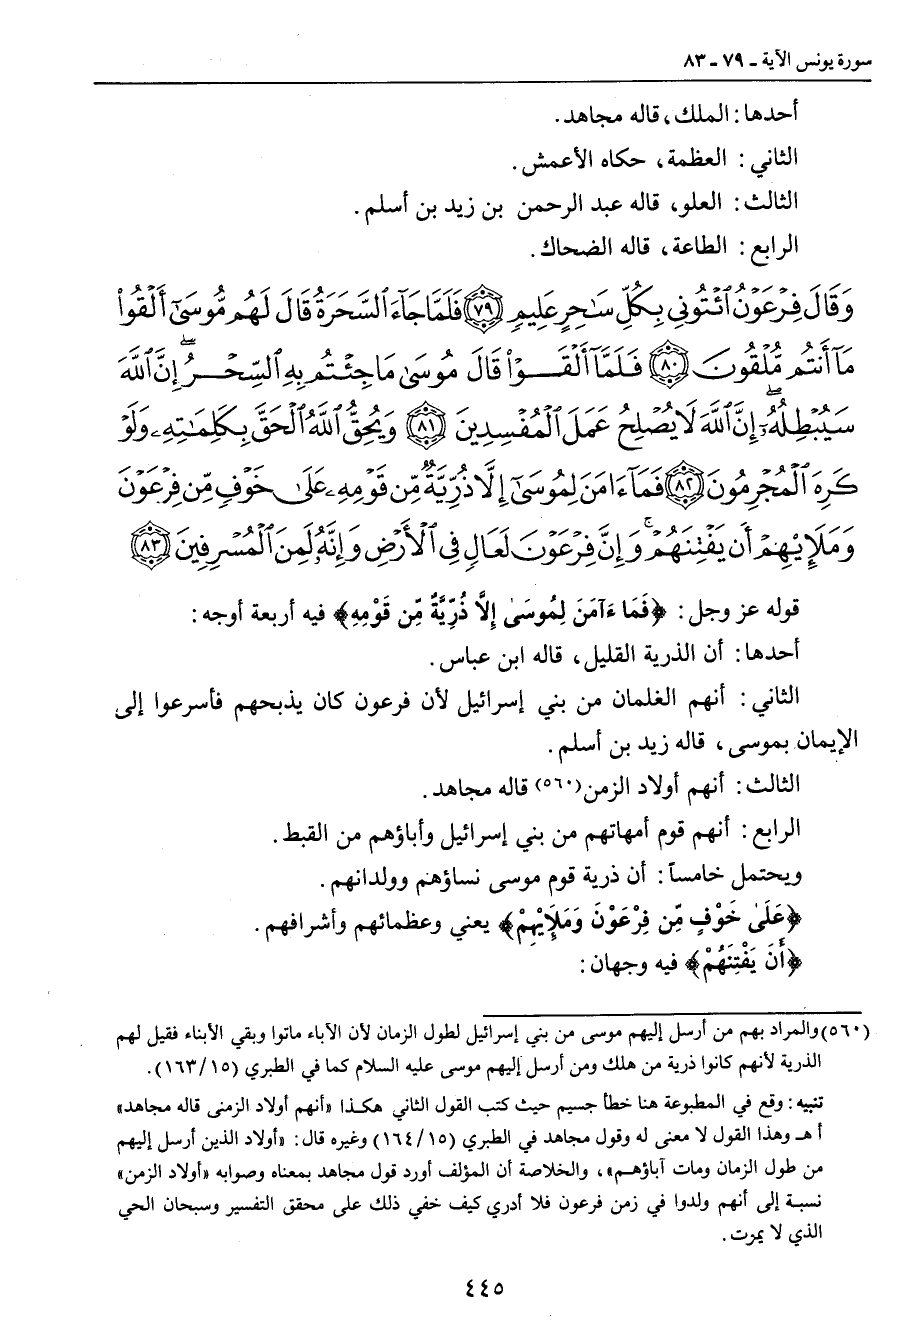 سورة يونس الآية ـ ٧٩ ـ ٨٣
أحدها: الملك، قاله مجاهد.
الثاني: العظمة، حكاه الأعمش.
الثالث: العلو، قاله عبد الرحمن بن زيد بن أسلم.
الرابع: الطاعة، قاله الضحاك.
وَقَالَ فِرْعَوْنُ ٱئْتُونِي بِكُلِّ سَٰحِرٍ عَلِيمٍ ﴿٧٩﴾ فَلَمَّا جَآءَ ٱلسَّحَرَةُ قَالَ لَهُم مُّوسَىٰٓ أَلْقُوا۟
مَآ أَنتُم مُّلْقُونَ ﴿٨٠﴾ فَلَمَّآ أَلْقَوْا۟ قَالَ مُوسَىٰ مَا جِئْتُم بِهِ ٱلسِّحْرُ ۖ إِنَّ ٱللَّهَ
سَيُبْطِلُهُۥٓ ۖ إِنَّ ٱللَّهَ لَا يُصْلِحُ عَمَلَ ٱلْمُفْسِدِينَ ﴿٨١﴾ وَيُحِقُّ ٱللَّهُ ٱلْحَقَّ بِكَلِمَٰتِهِۦ وَلَوْ
كَرِهَ ٱلْمُجْرِمُونَ ﴿٨٢﴾ فَمَآ ءَامَنَ لِمُوسَىٰٓ إِلَّا ذُرِّيَّةٌ مِّن قَوْمِهِۦ عَلَىٰ خَوْفٍ مِّن فِرْعَوْنَ
وَمَلَإِي۟هِمْ أَن يَفْتِنَهُمْ ۚ وَإِنَّ فِرْعَوْنَ لَعَالٍ فِي ٱلْأَرْضِ وَإِنَّهُۥ لَمِنَ ٱلْمُسْرِفِينَ ﴿٨٣﴾
قوله عز وجل: ﴿فَمَا ءَآمَنَ لِمُوسَىٰ إِلَّا ذُرِّيَّةٌ مِّن قَوْمِهِ﴾ فيه أربعة أوجه:
أحدها: أن الذرية القليل، قاله ابن عباس.
الثاني: أنهم الغلمان من بني إسرائيل لأن فرعون كان يذبحهم فأسرعوا إلى
الإيمان بموسى، قاله زيد بن أسلم.
الثالث: أنهم أولاد الزمن(٥٦٠) قاله مجاهد.
الرابع: أنهم قوم أمهاتهم من بني إسرائيل وأباؤهم من القبط.
ويحتمل خامساً: أن ذرية قوم موسى نساؤهم وولدانهم.
﴿عَلَىٰ خَوْفٍ مِّن فِرْعَوْنَ وَمَلَإِيْهِمْ﴾ يعني وعظمائهم وأشرافهم.
﴿أَن يَفْتِنَهُمْ﴾ فيه وجهان:
(٥٦٠) والمراد بهم من أرسل إليهم موسى من بني إسرائيل لطول الزمان لأن الآباء ماتوا وبقي الأبناء فقيل لهم
الذرية لأنهم كانوا ذرية من هلك ومن أرسل إليهم موسى عليه السلام كما في الطبري (١٦٣/١٥).
تنبيه: وقع في المطبوعة هنا خطأ جسيم حيث كتب القول الثاني هكذا «أنهم أولاد الزمنى قاله مجاهد»
أ هـ وهذا القول لا معنى له وقول مجاهد في الطبري (١٦٤/١٥) وغيره قال: «أولاد الذين أرسل إليهم
من طول الزمان ومات آباؤهم»، والخلاصة أن المؤلف أورد قول مجاهد بمعناه وصوابه «أولاد الزمن»
نسبة إلى أنهم ولدوا في زمن فرعون فلا أدري كيف خفي ذلك على محقق التفسير وسبحان الحي
الذي لا يموت.
٤٤٥